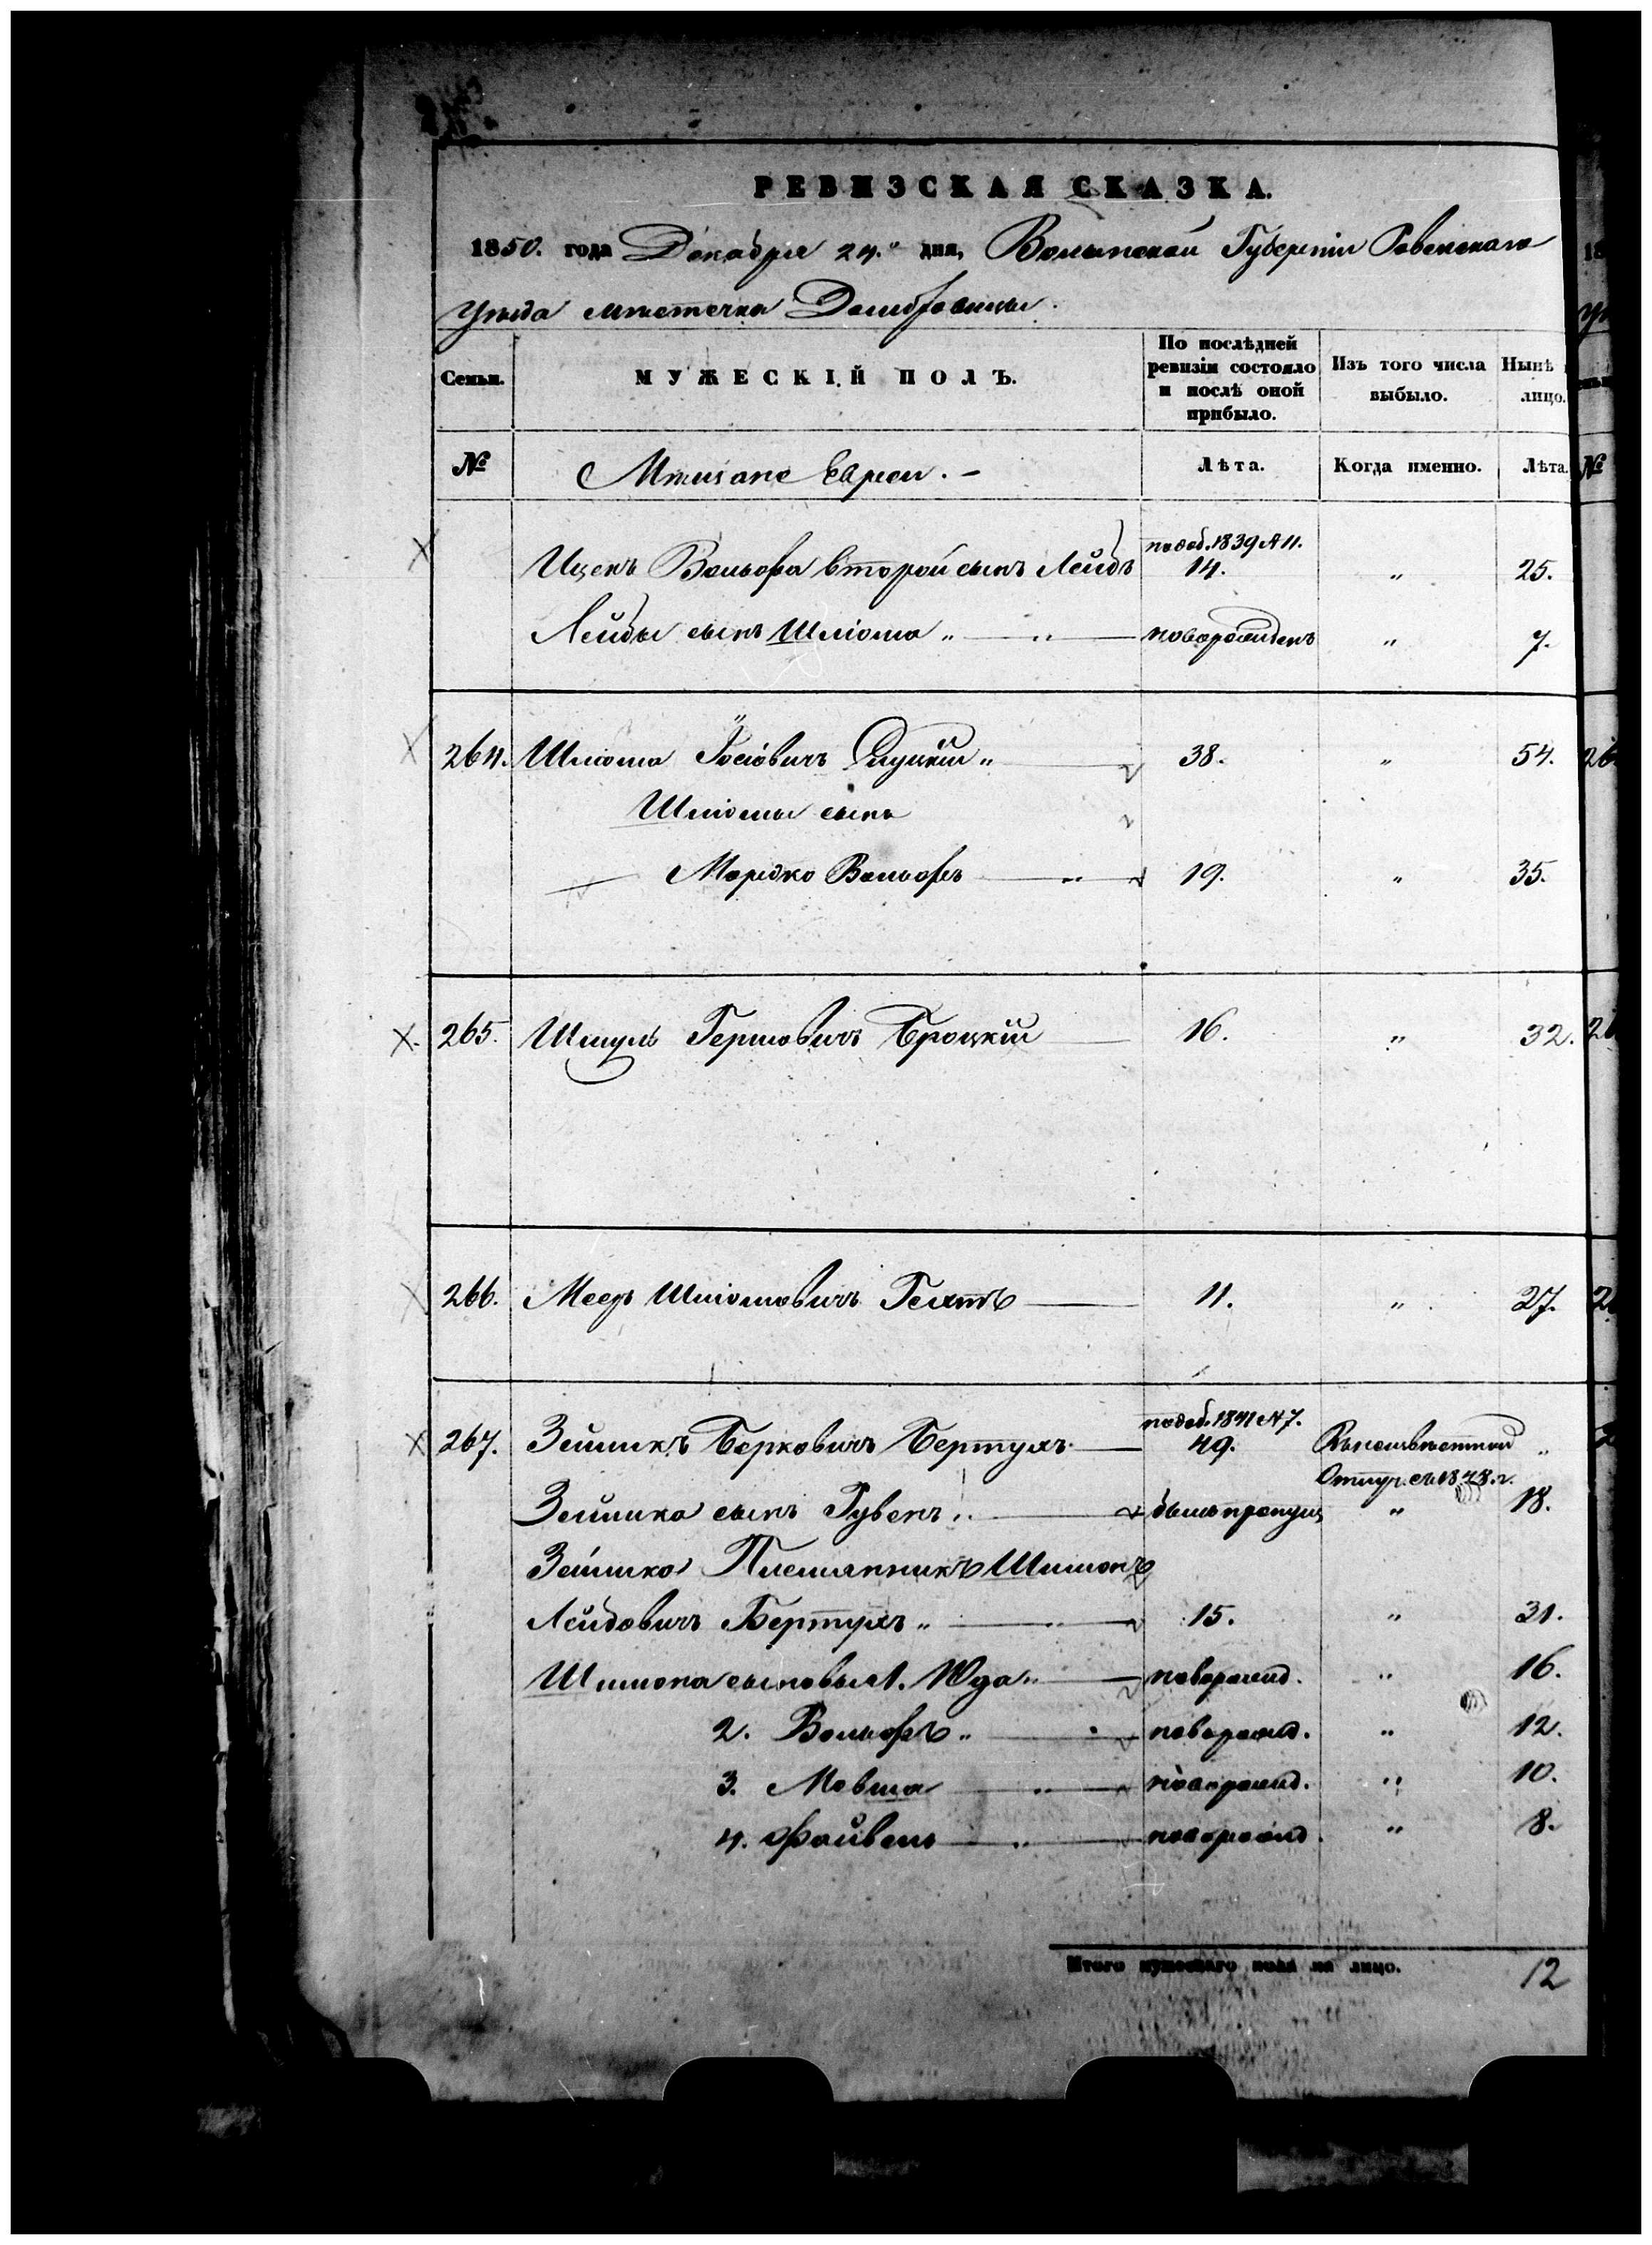 РЕВИЗСКАЯ СКАЗКА.
1850. года Декабря 24." дня, Волынской Губерніи Ровенскаго
Уѣзда мѣстечка Домбровицы.
Семьи.
МУЖЕСКІЙ ПОЛЪ.
По послѣдней ревизіи состояло и послѣ оной прибыло.
Изъ того числа выбыло.
Нынѣ лицо.
№ Мѣщане Евреи. — Лѣта. Когда именно. Лѣта. №
по доб. 1839 № 11.
Ицекъ Вольфа второй сынъ Лейбъ 14. " 25.
Лейбы сынъ Шліома " — " — новорожденъ " 7.
264. Шліома Іосіовичъ Слуцкій " 38. " 54.
Шліомы сынъ
Мордко Вольфъ — " 19. " 35.
265. Шмуль Гершовичъ Броцкій — 16. " 32.
266. Меер Шліомовичъ Гелтъ — 11. " 27.
по доб. 1841 № 7.
267. Зейликъ Берковичъ Бертухъ — 49. "
Отлуч. съ 1848. г.
Зейлика сынъ Рувенъ " — былъ пропущ " 18.
Зейлика Племянникъ Шимонъ
Лейбовичъ Бертухъ " — " — 15. " 31.
Шимона сыновья 1. Юда " — новорожд. " 16.
2. Вольфъ " — новорожд. " 12.
3. Мовша — " — новорожд. " 10.
4. Файвель — " — новорожд. " 8.
Итого мужескаго пола на лицо. 12